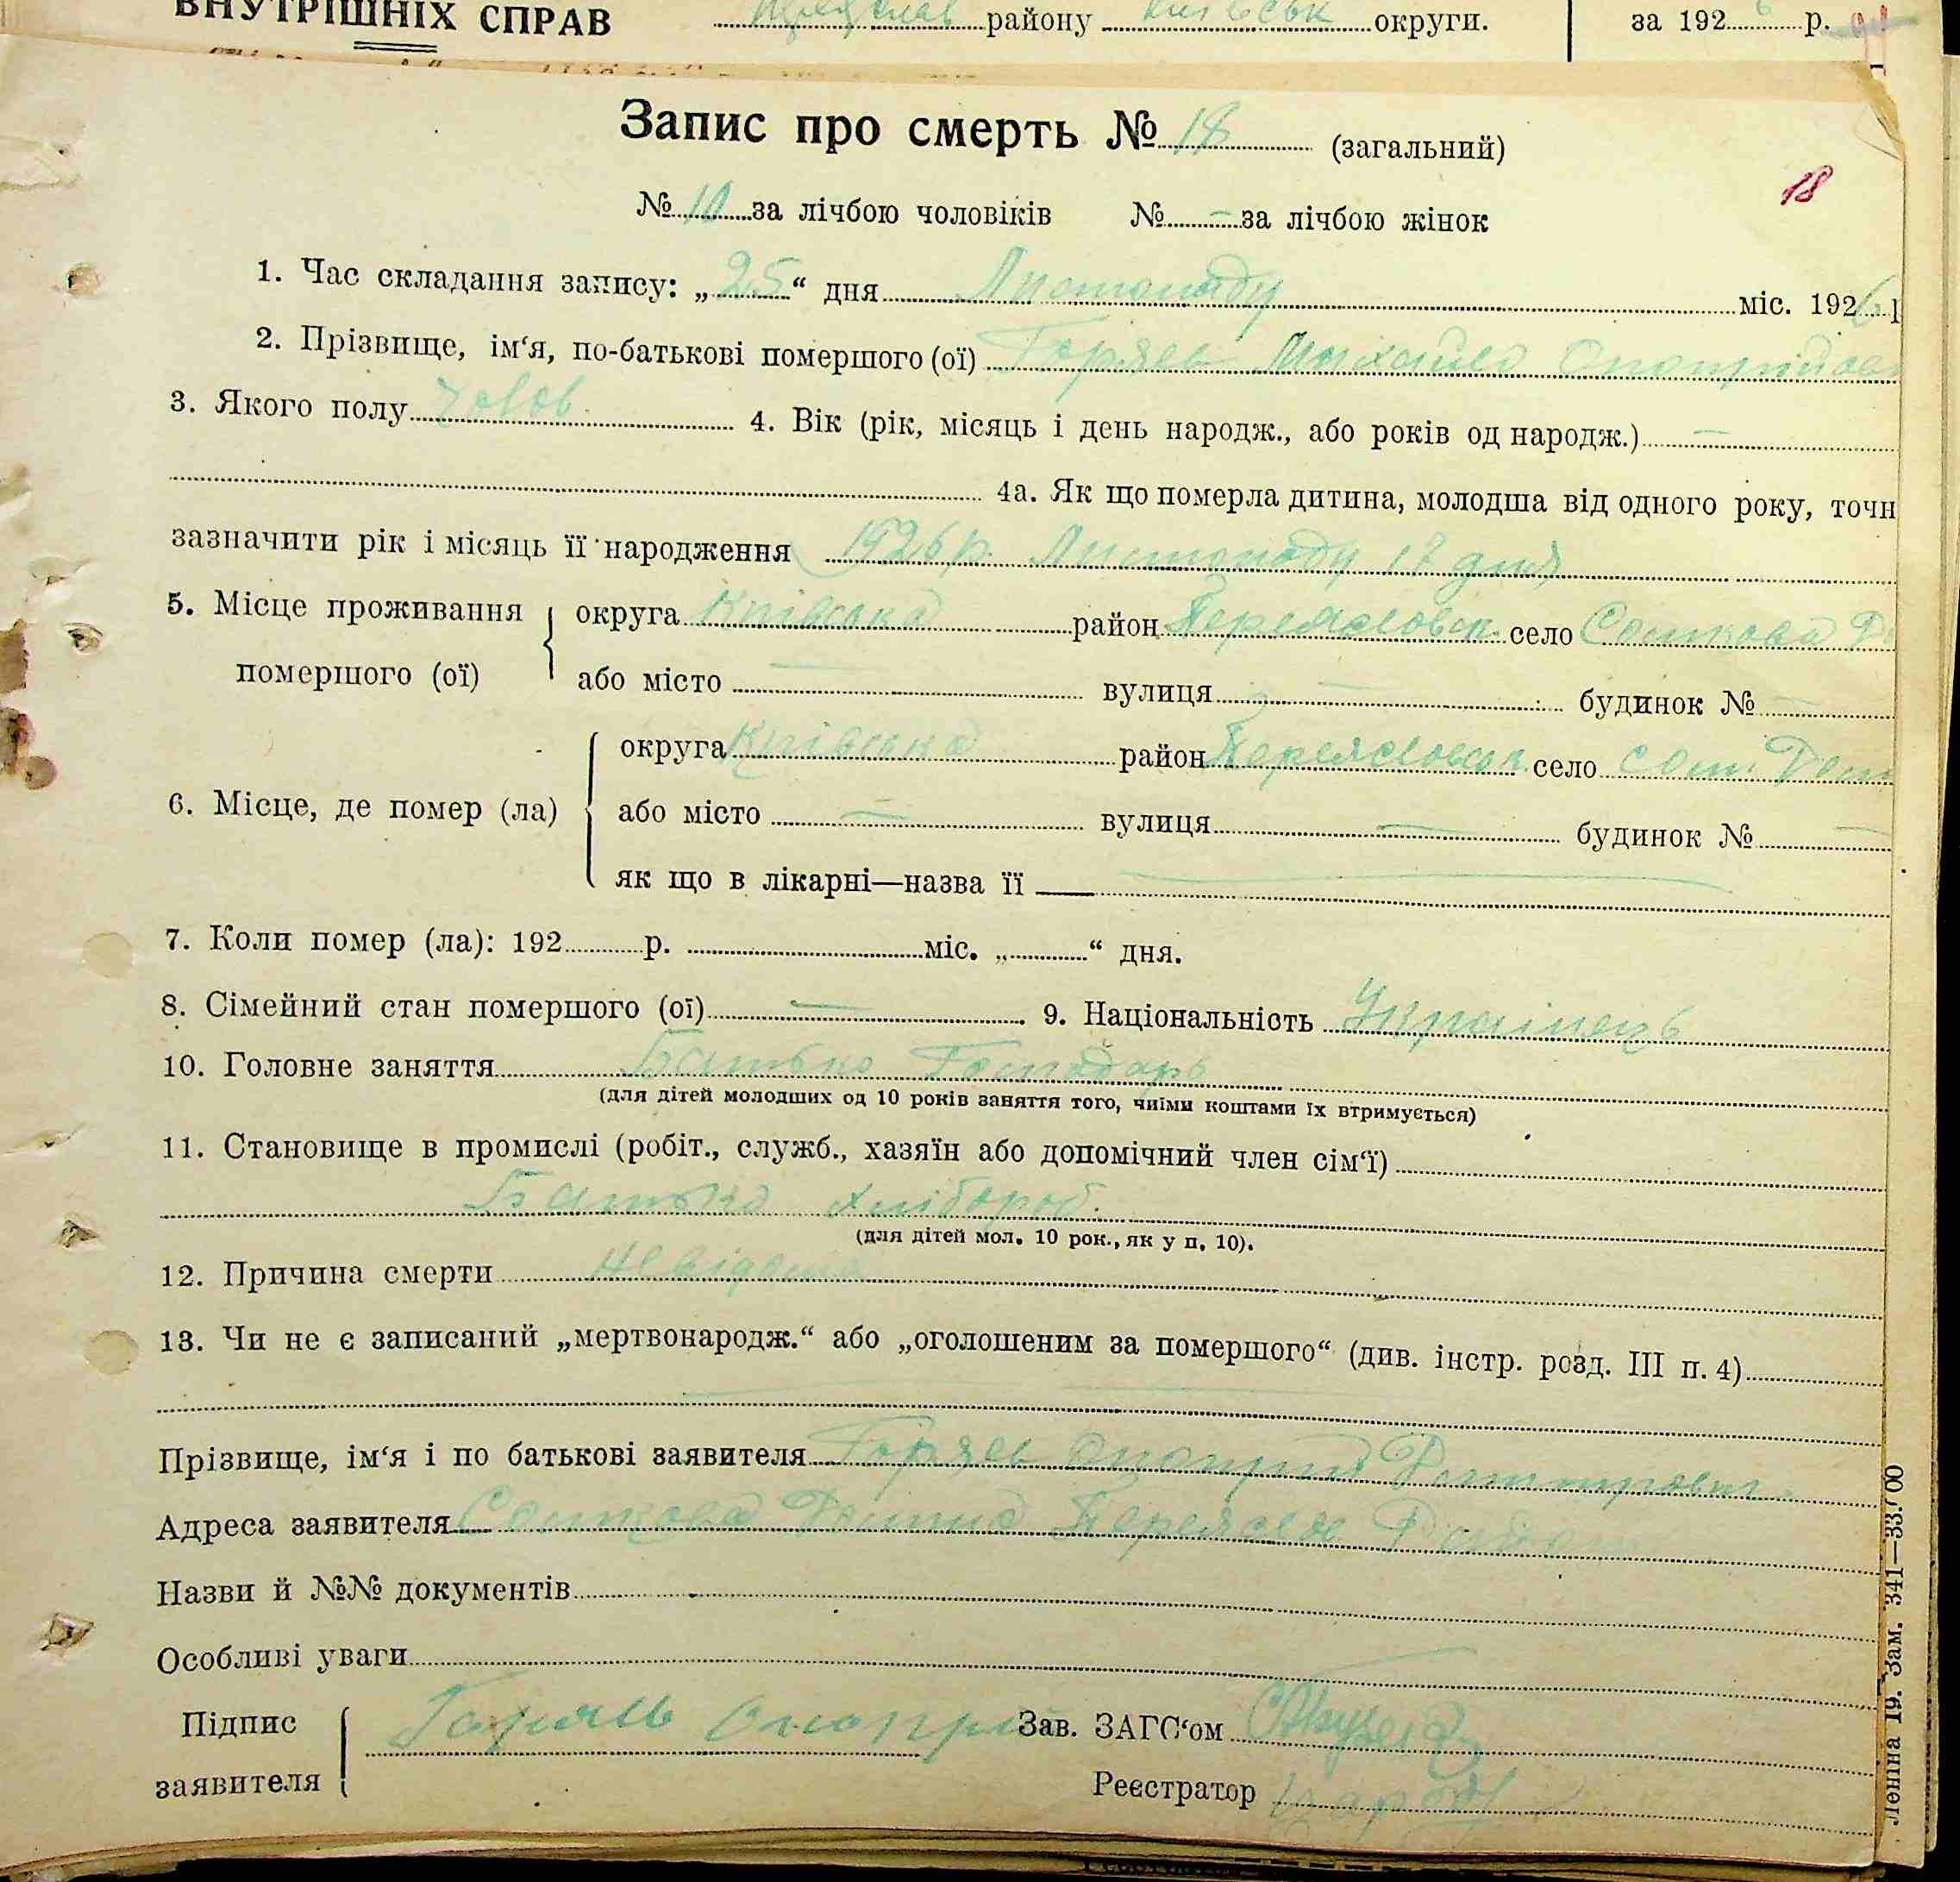 ВНУТРІШНІХ СПРАВ району округи. за 192 р.
Запис про смерть № 18 (загальний)
18
№ 10 за лічбою чоловіків № — за лічбою жінок
1. Час складання запису: „25“ дня Листопаду міс. 1926
2. Прізвище, ім‘я, по-батькові помершого (ої) Горяєв Михайло
3. Якого полу Чолов. 4. Вік (рік, місяць і день народж., або років од народж.) —
4а. Як що померла дитина, молодша від одного року, точн
зазначити рік і місяць її народження 1926 р. Листопаду 18 дня
5. Місце проживання округа Київська район село
помершого (ої) або місто — вулиця — будинок № —
округа Київська район село
6. Місце, де помер (ла) або місто — вулиця — будинок № —
як що в лікарні—назва її —
7. Коли помер (ла): 192 р. міс. „ “ дня.
8. Сімейний стан помершого (ої) — 9. Національність Українець
10. Головне заняття Батько Господарь
(для дітей молодших од 10 років заняття того, чиїми коштами їх втримується)
11. Становище в промислі (робіт., служб., хазяїн або допомічний член сім‘ї)
Батько хлібороб.
(для дітей мол. 10 рок., як у п. 10).
12. Причина смерти Невідома
13. Чи не є записаний „мертвонародж.“ або „оголошеним за помершого“ (див. інстр. розд. III п. 4)
Прізвище, ім‘я і по батькові заявителя Горяєв
Адреса заявителя
Назви й №№ документів
Особливі уваги
Підпис Зав. ЗАГС‘ом
заявителя Реєстратор
Леніна 19. Зам. 341—33.